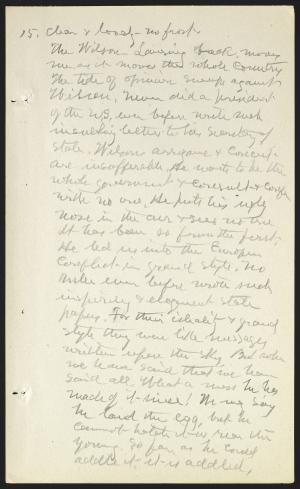 15. Clear & lovely - no frost
The Wilson - Lansing break, moves
me as it moves the whole Country
The tide of opinion sweeps against
Wilson, never did a president
of the U.S, ever before write such
insulting letter to his Secretary of
State. Wilsons arrogance & conceit
are insufferable. He wants to be the
whole government & consult & confer
with no one. He puts his ugly
nose in the air & sees no one
It has been so from the first.
He led us into the European
Conflict in grand style. No
ruler ever before wrote such
inspiring & eloquent state
papers. For their ideality & grand
style they were like messages
written upon the sky. But when
we have said that we have
said all. What a mess he has
made of it since! We may say
he laid the egg, but he
cannot hatch it or rear the
young. So far as he could
addle it, it is addled,